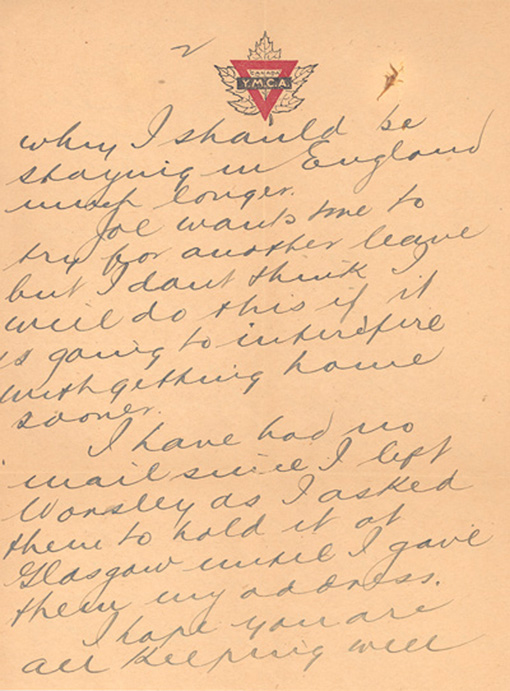 2
CANADA
Y.M.C.A.
why I should be
staying in England
much longer.
Joe wants me to
try for another leave
but I dont think I
will do this if it
is going to interefire
with getting home
sooner.
I have had no
mail since I left
Worsley as I asked
them to hold it at
Glasgow until I gave
them my address.
I hope you are
all keeping well